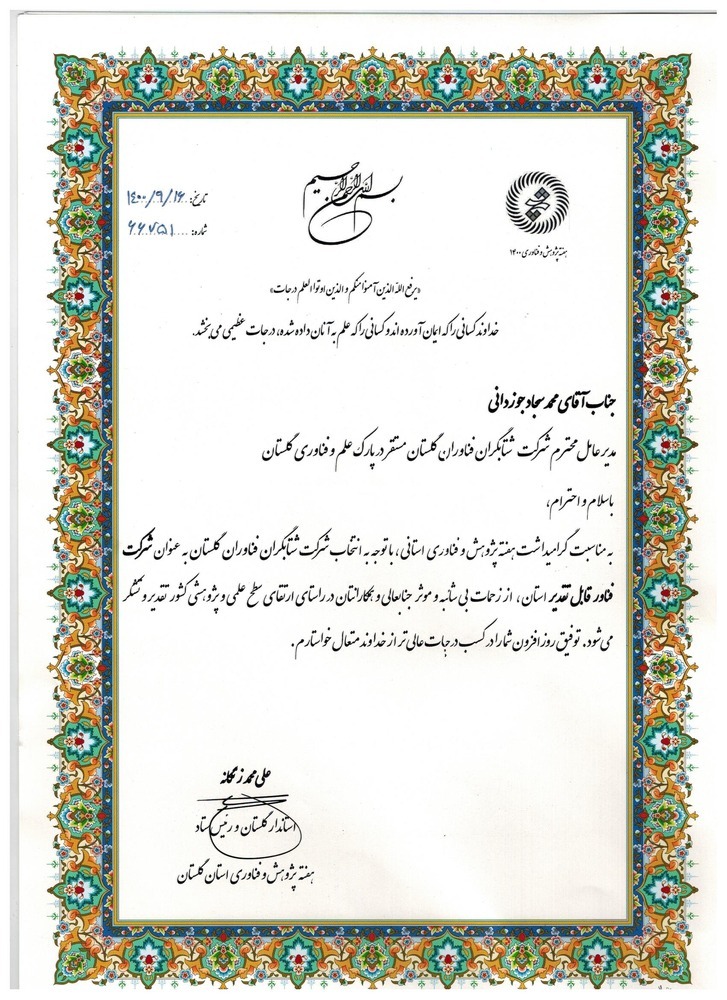 بسم الله الرحمن الرحیم
هفته پژوهش و فناوری ۱۴۰۰
تاریخ: ۱۴۰۰/۹/۱۶
شماره: ۶۶۷۵۱
«یرفع الله الذین آمنوا منکم و الذین اوتوا العلم درجات»
خداوند کسانی را که ایمان آورده اند و کسانی را که علم به آنان داده شده، درجات عظیمی می بخشد.
جناب آقای محمد سجاد جوزدانی
مدیر عامل محترم شرکت شتابگران فناوران گلستان مستقر در پارک علم و فناوری گلستان
باسلام و احترام،
به مناسبت گرامیداشت هفته پژوهش و فناوری استانی، با توجه به انتخاب شرکت شتابگران فناوران گلستان به عنوان شرکت
فناور قابل تقدیر استان، از زحمات بی شائبه و موثر جنابعالی و همکارانتان در راستای ارتقای سطح علمی و پژوهشی کشور تقدیر و تشکر
می شود. توفیق روزافزون شما را در کسب درجات عالی تر از خداوند متعال خواستارم.
علی محمد زنگانه
استاندار گلستان و رئیس ستاد
هفته پژوهش و فناوری استان گلستان